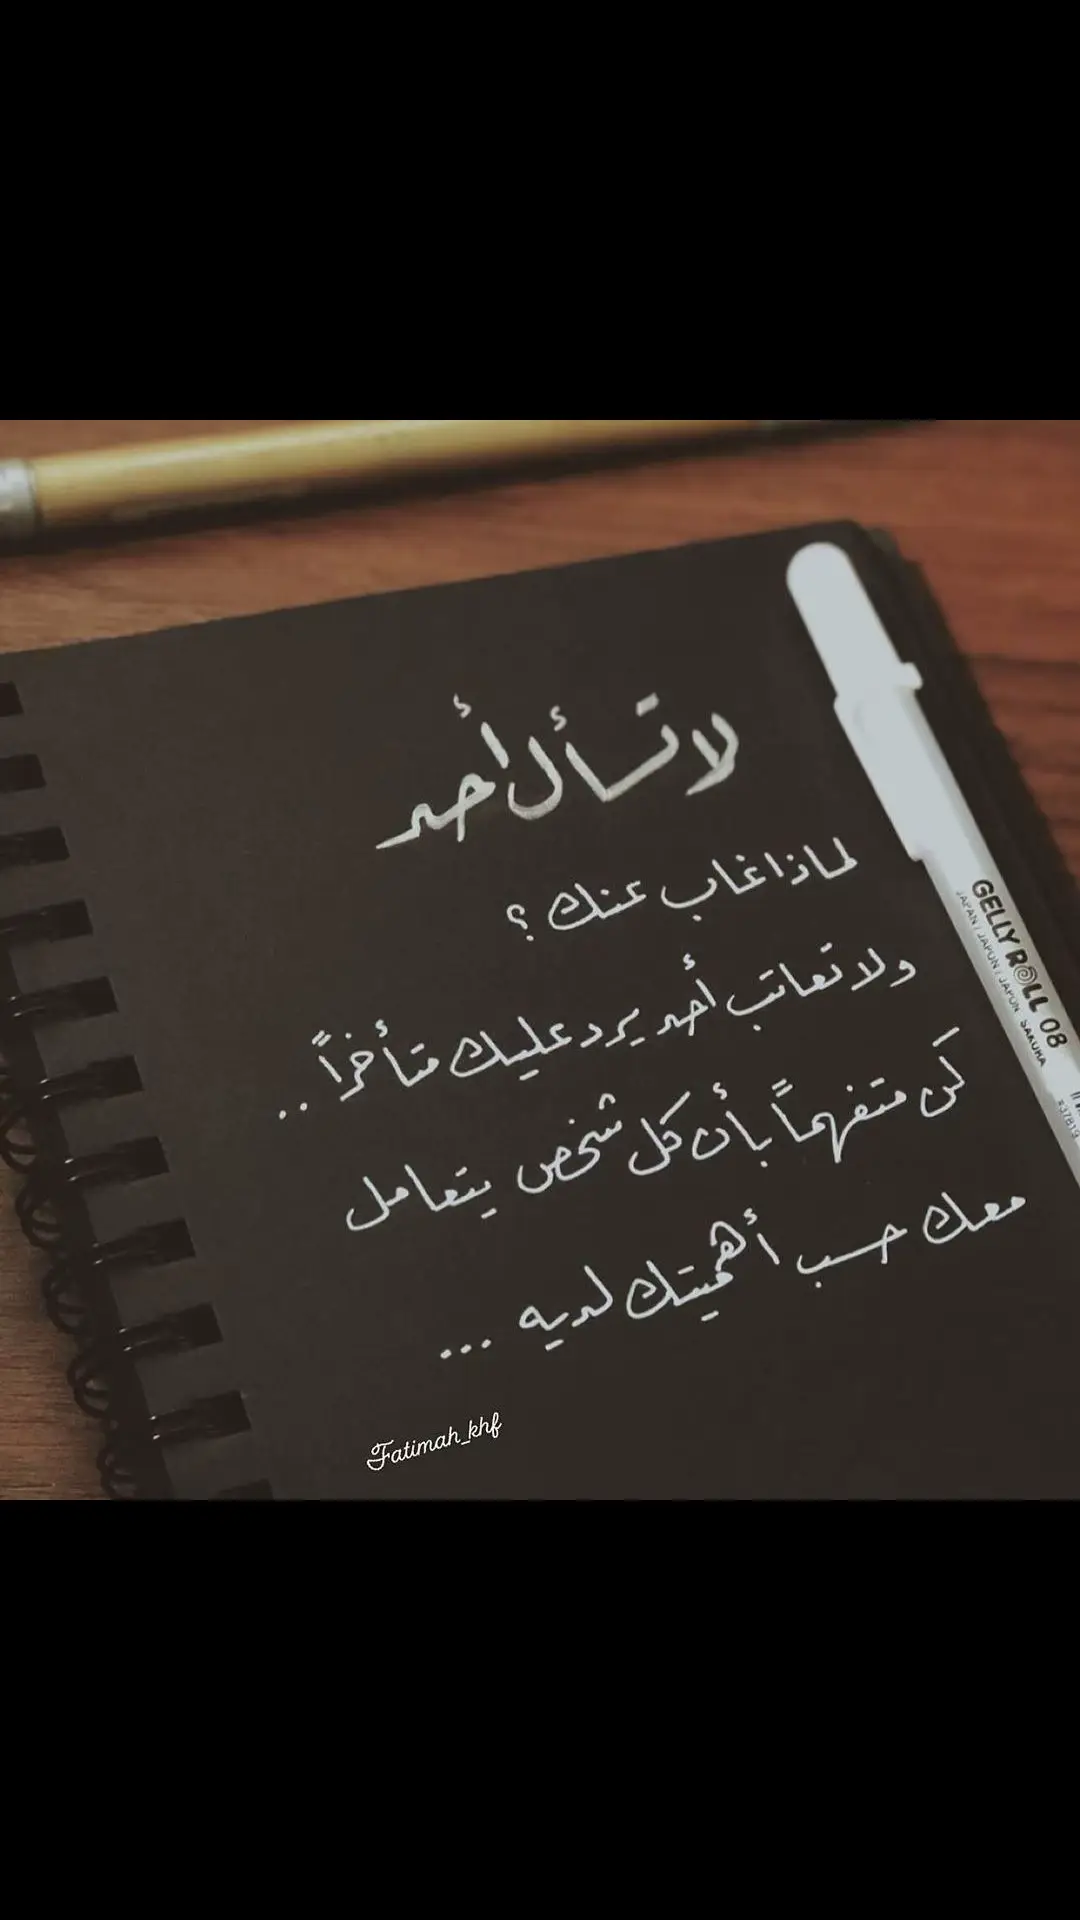 لا تسأل أحد
لماذا غاب عنك ؟
ولا تعاتب أحد يرد عليك متأخراً ..
كن متفهماً بأن كل شخص يتعامل
معك حسب أهميتك لديه ...
Fatimah_khf
GELLY ROLL 08
JAPAN / JAPON / JAPÓN SAKURA